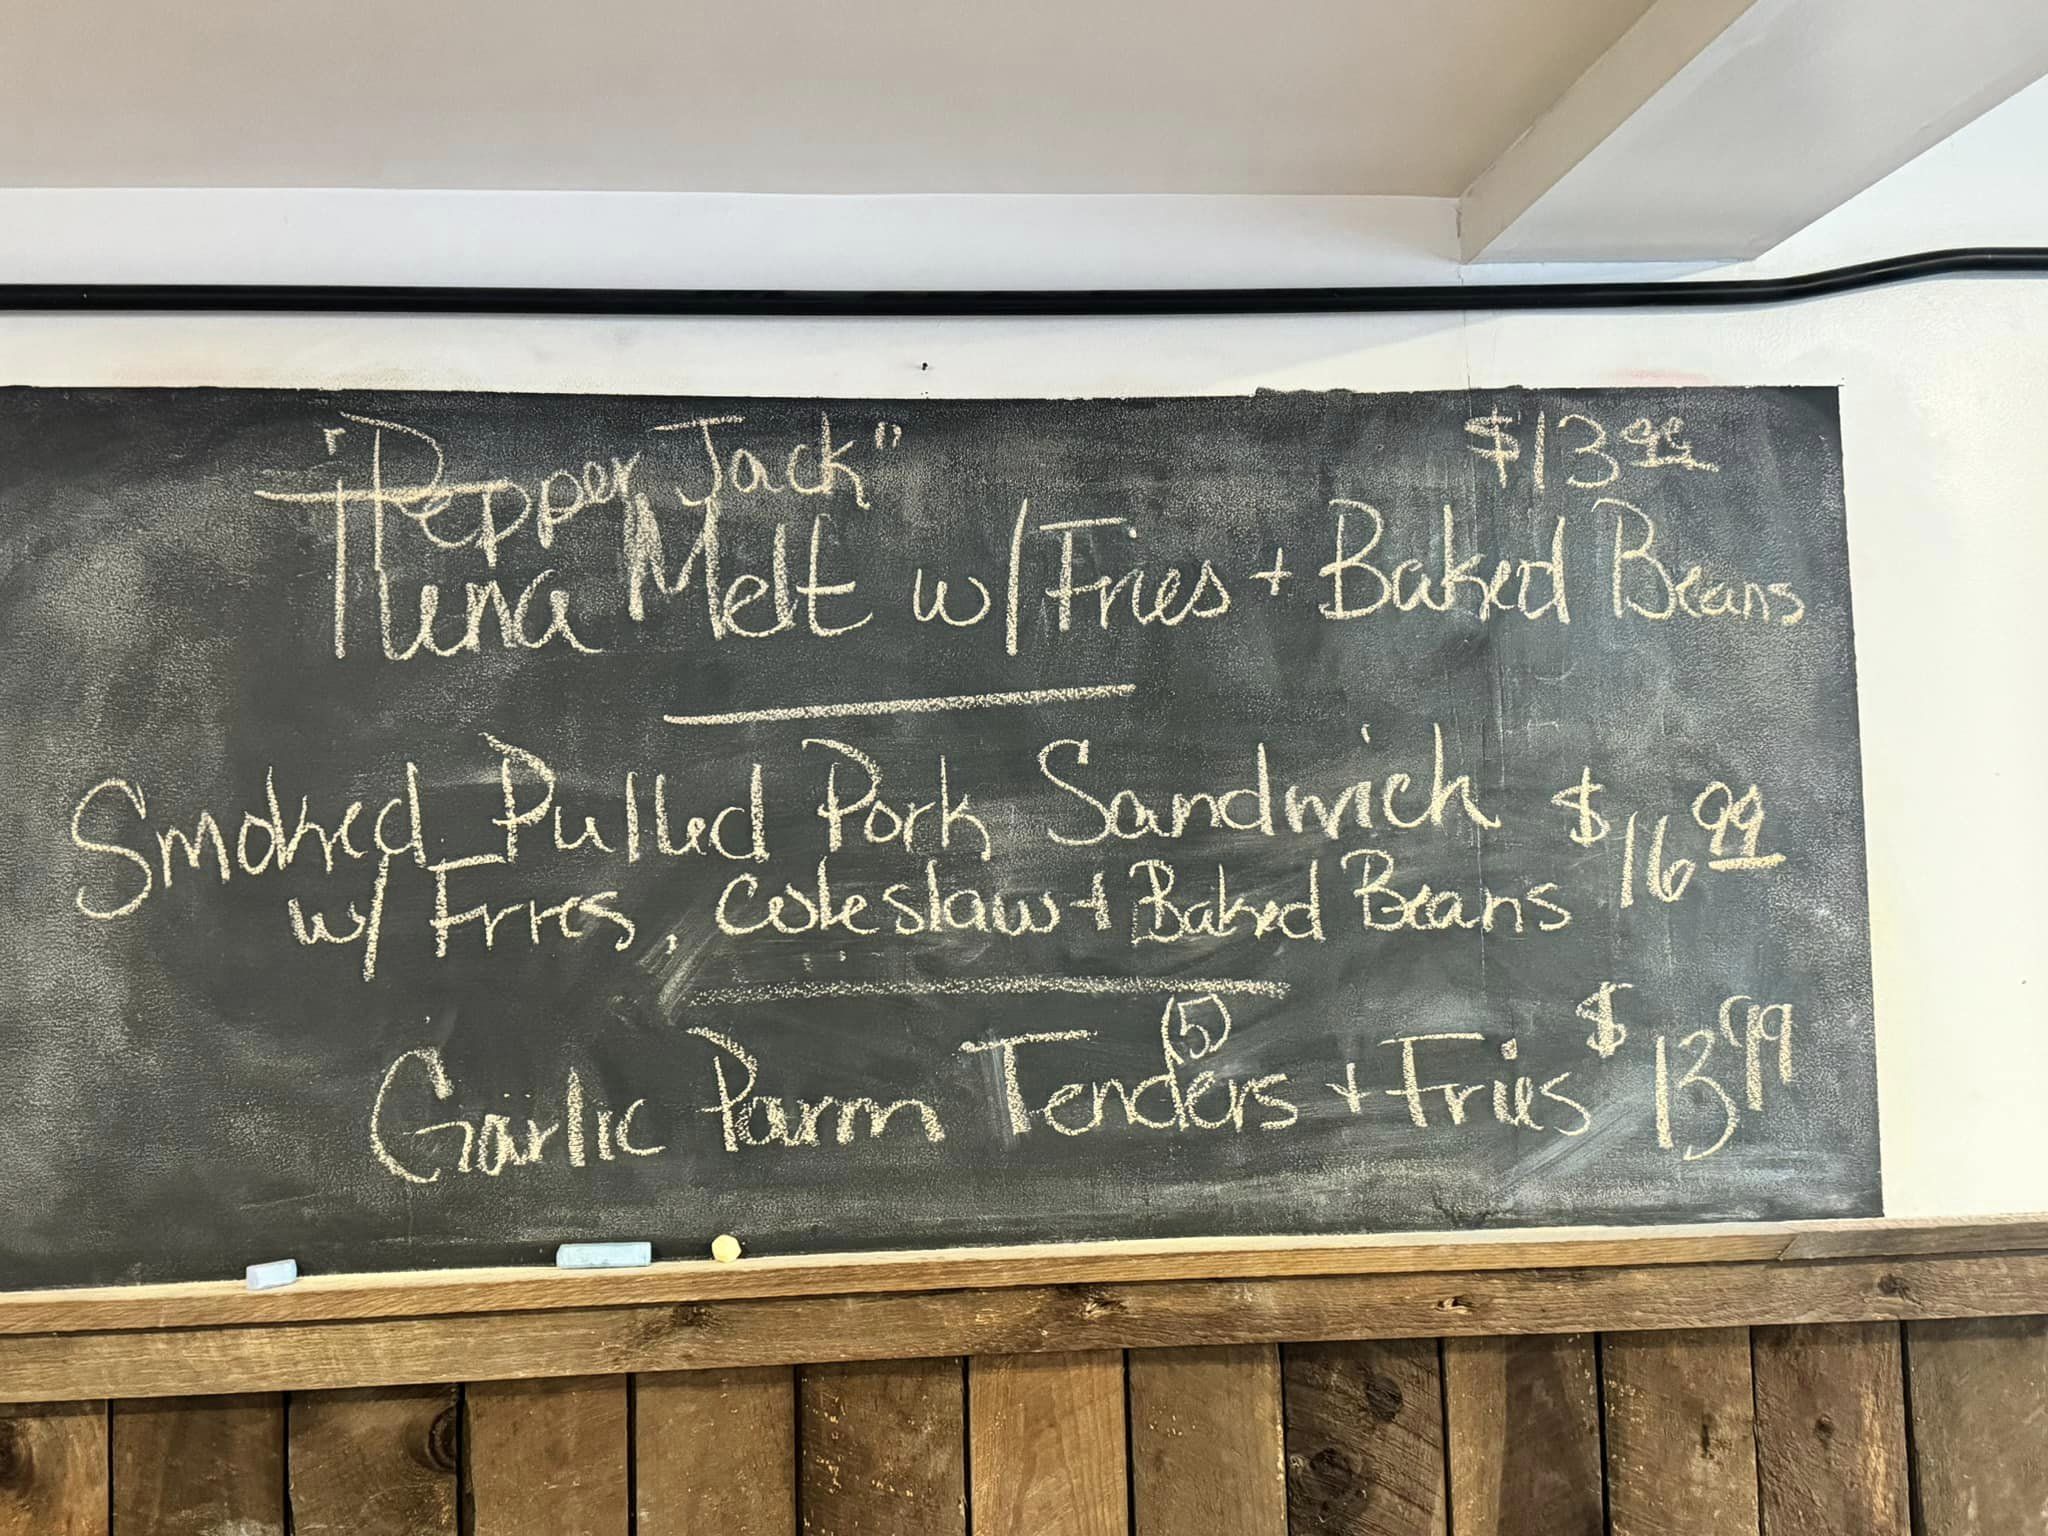 "Pepper Jack" $13.99
Tuna Melt w/ Fries + Baked Beans
Smoked Pulled Pork Sandwich $16.99
w/ Fries, coleslaw + Baked Beans
(5)
Garlic Parm Tenders + Fries $13.99